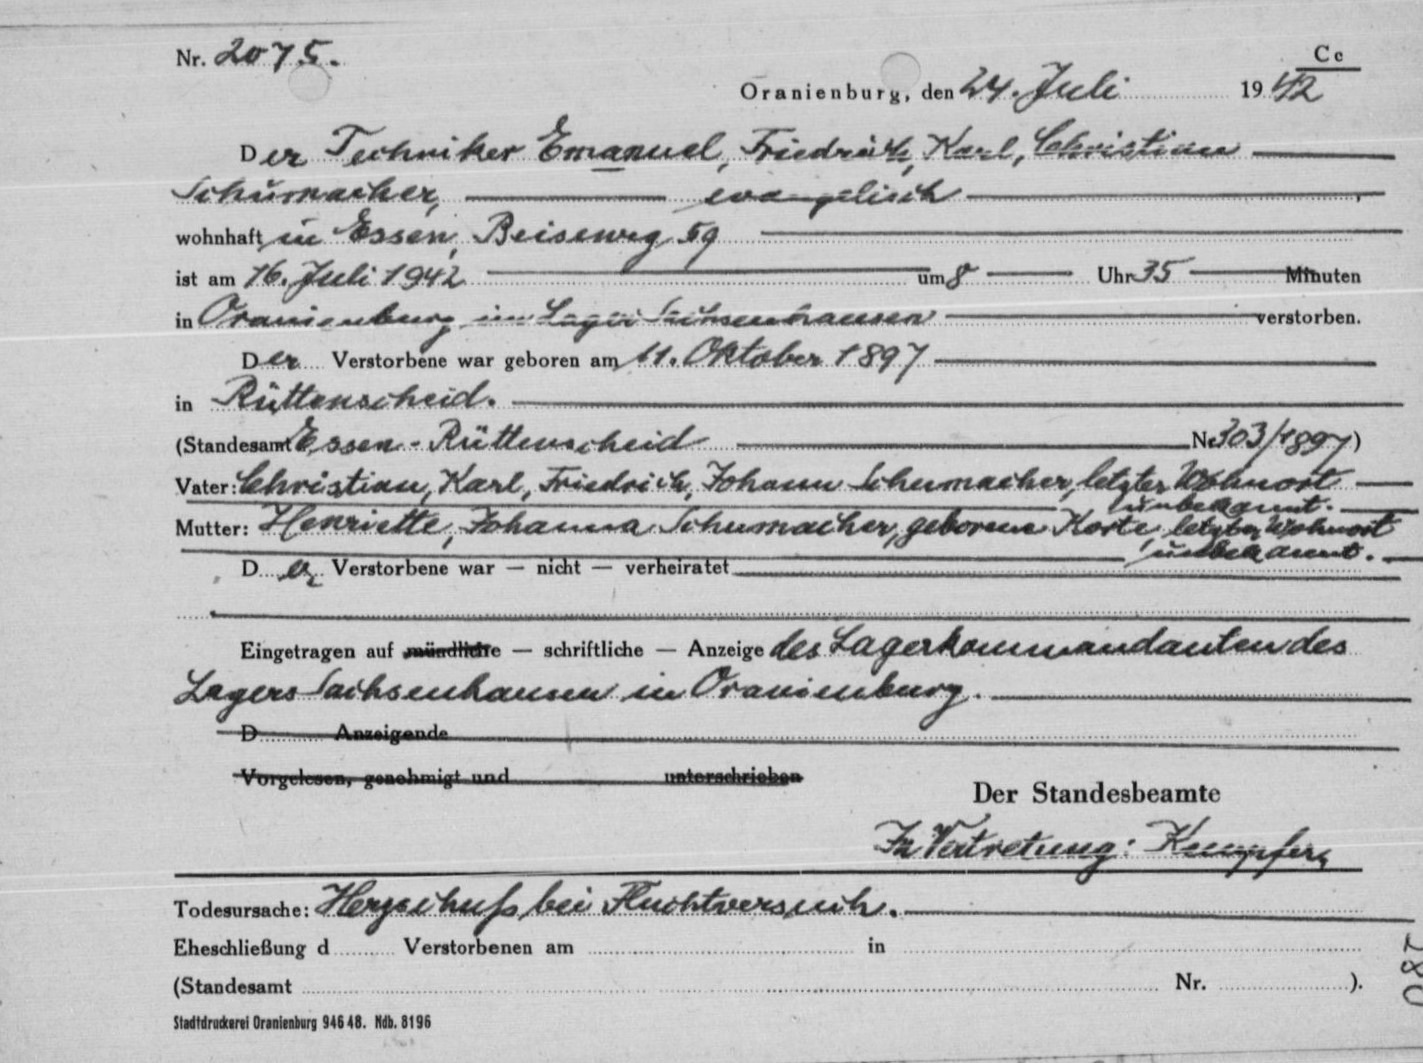 Nr. 2075.
Cc
Oranienburg, den 24. Juli 1942
Der Techniker Emanuel, Friedrich, Karl, Christian
Schumacher, evangelisch
wohnhaft in Essen, Beiseweg 59
ist am 16. Juli 1942 um 8 Uhr 35 Minuten
in Oranienburg im Lager Sachsenhausen verstorben.
Der Verstorbene war geboren am 11. Oktober 1897
in Rüttenscheid.
(Standesamt Essen-Rüttenscheid Nr. 303/1897)
Vater: Christian, Karl, Friedrich, Johann Schumacher, letzter Wohnort
unbekannt.
Mutter: Henriette, Johanna Schumacher, geborene Korte, letzter Wohnort
unbekannt.
Der Verstorbene war — nicht — verheiratet
Eingetragen auf mündliche — schriftliche — Anzeige des Lagerkommandanten des
Lagers Sachsenhausen in Oranienburg.
D Anzeigende
Vorgelesen, genehmigt und unterschrieben
Der Standesbeamte
In Vertretung:
Todesursache: Herzschuß bei Fluchtversuch.
Eheschließung d Verstorbenen am in
(Standesamt Nr. ).
Stadtdruckerei Oranienburg 946 48. Ndb. 8196
280